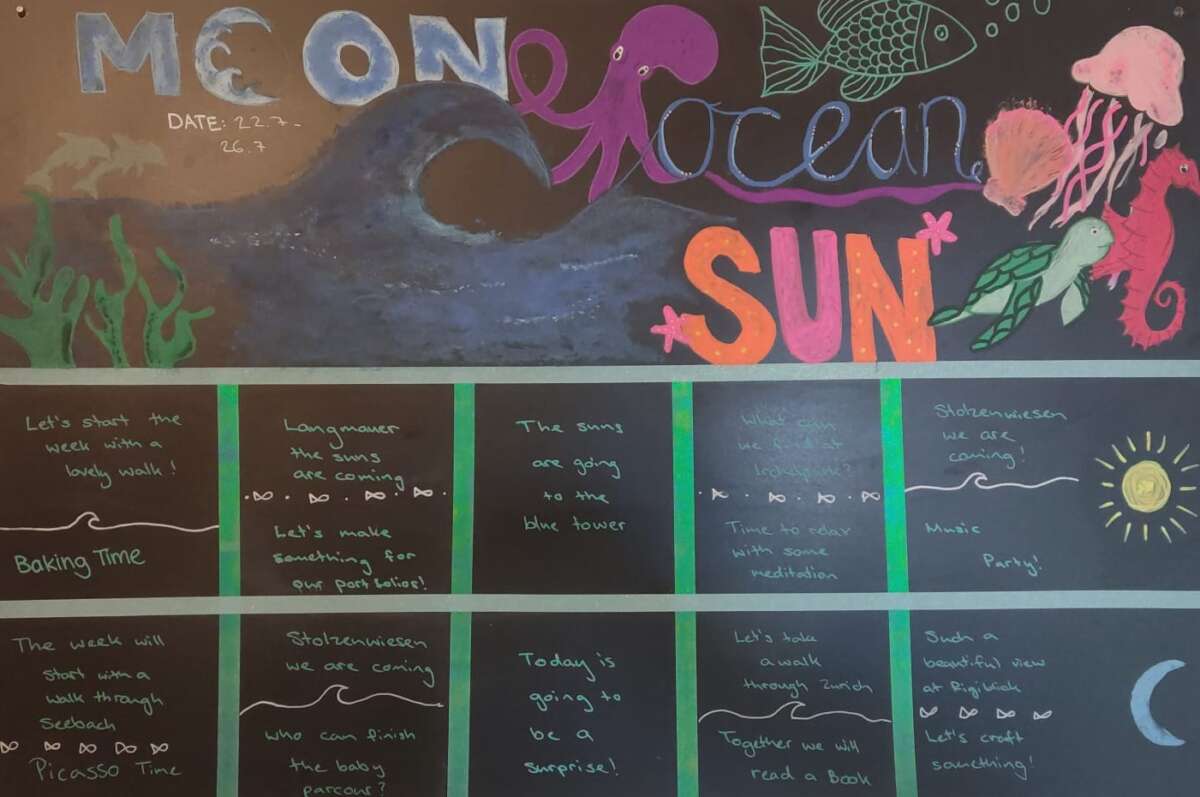 MOON
DATE: 22.7 -
26.7
ocean
SUN
Let's start the
week with a
lovely walk!
Baking Time
Langmauer
the suns
are coming
Let's make
something for
our portfolios!
The suns
are going
to the
blue tower
What can
we find at
Irchelpark?
Time to relax
with some
meditation
Stolzenwiesen
we are
coming!
Music
Party!
The week will
start with a
walk through
Seebach
Picasso Time
Stolzenwiesen
we are coming
who can finish
the baby
parcour?
Today is
going to
be a
surprise!
Let's take
a walk
through Zurich
Together we will
read a Book
Such a
beautiful view
at Rigiblick
Let's craft
something!